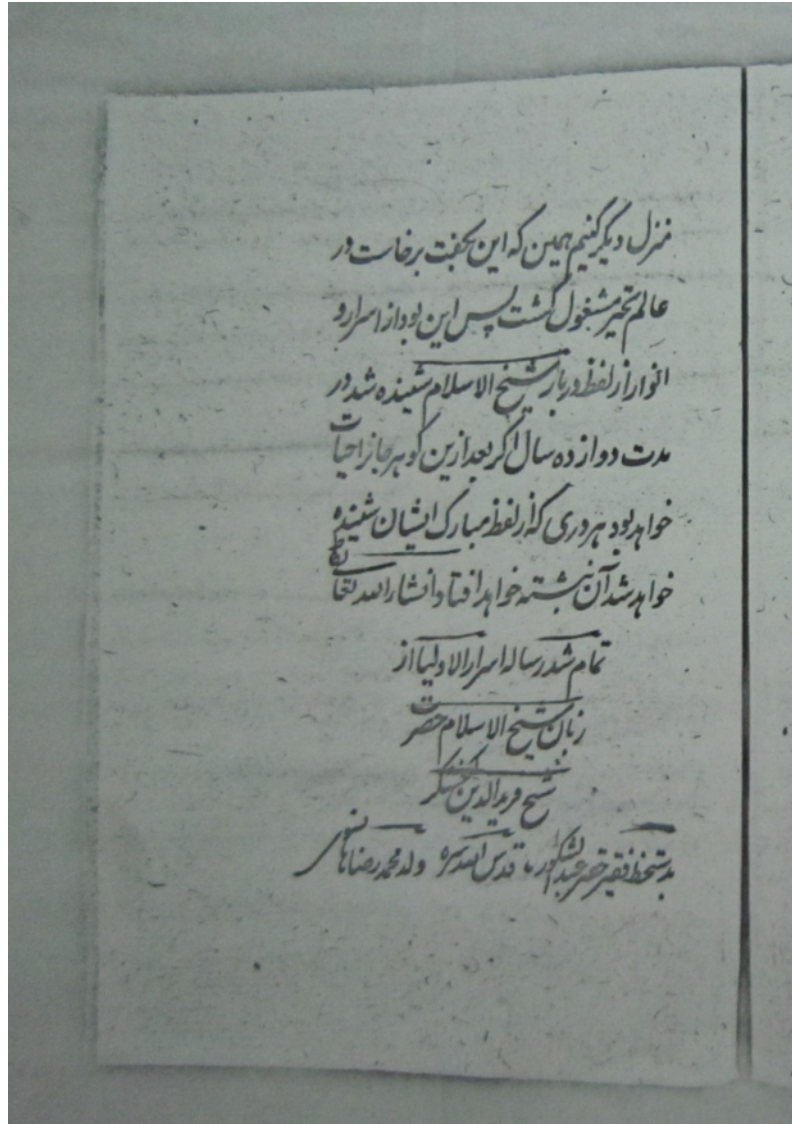 منزل دیگر کنیم همین که این بگفت برخاست در
عالم تحیر مشغول گشت پس این بود از اسرار و
انوار از لفظ دربار شیخ الاسلام شنیده شد در
مدت دوازده سال اگر بعد ازین گوهر جانرا حیات
خواهد بود هر دری که از لفظ مبارک ایشان شنیده
خواهد شد آن نبشته خواهد افتاد انشاء الله تعالی
تمام شد رساله اسرار الاولیا از
زبان شیخ الاسلام حضرت
شیخ فرید الدین گنج شکر
بدستخط فقیر حقیر عبدالشکور قدس الله سره ولد محمد رضا هانسوی